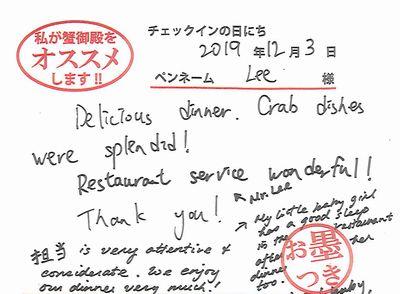 私が蟹御殿を
オススメ
します!!
チェックインの日にち
2019 年 12 月 3 日
ペンネーム Lee 様
Delicious dinner. Crab dishes
were splendid!
Restaurant service wonderful!
Thank you!
Mr. Lee
My little baby girl
has a good sleep
in the restaurant
after her
dinner
too.
担当 is very attentive &
considerate. We enjoy
our dinner very much!
お墨
つき